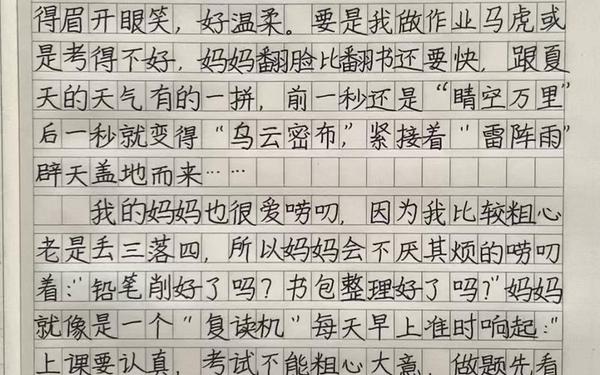 得眉开眼笑，好温柔。要是我做作业马虎或
是考得不好，妈妈翻脸比翻书还要快，跟夏
天的天气有的一拼，前一秒还是“晴空万里”
后一秒就变得“乌云密布”，紧接着“雷阵雨”
辟天盖地而来……
我的妈妈也很爱唠叨，因为我比较粗心
老是丢三落四，所以妈妈会不厌其烦的唠叨
着：“铅笔削好了吗？书包整理好了吗？”妈妈
就像是一个“复读机”每天早上准时响起：“
上课要认真，考试不能粗心大意，做题先看